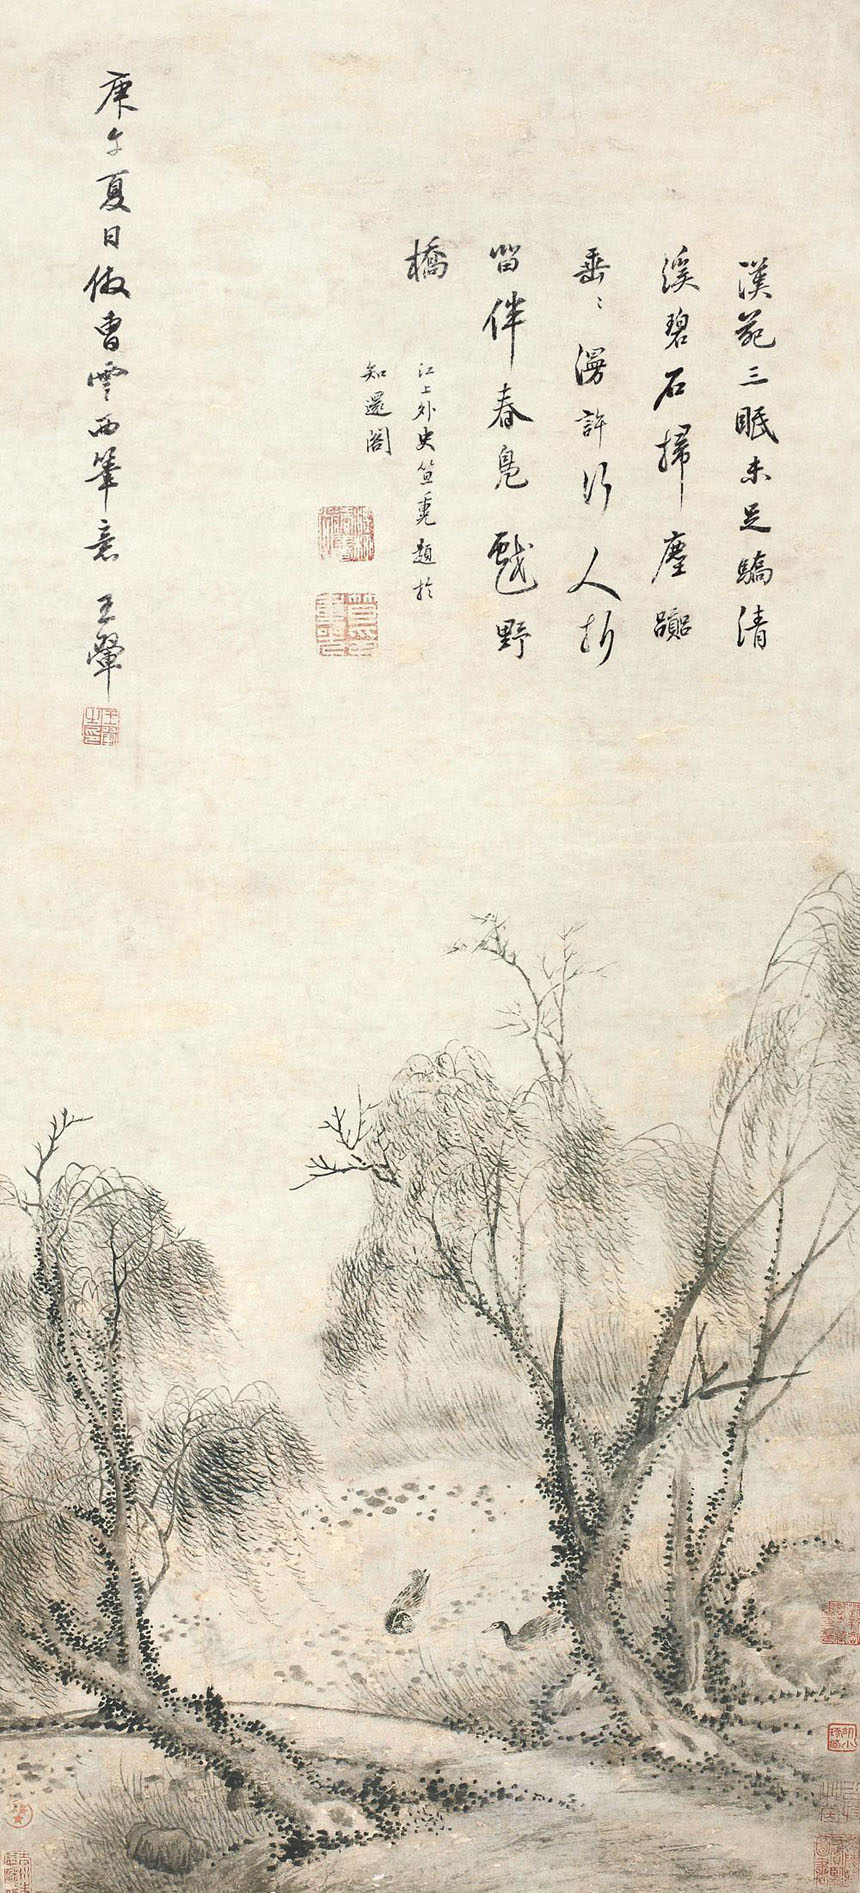 漢苑三眠未足驕清
溪碧石掃塵囂
垂〻漫許行人折
留伴春鳧戲野
橋
江上外史笪重光題於
知還閣
庚午夏日倣曹雲西筆意 王翬